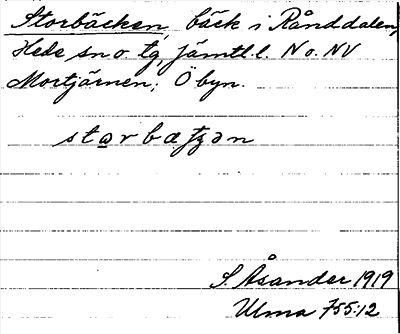 Storbäcken, bäck i Rånddalen,
Hede sn o tg, Jämtl.l. N o. NV
Mortjärnen; Ö byn.
starbætʒən
S. Åsander 1919
Ulma 755:12